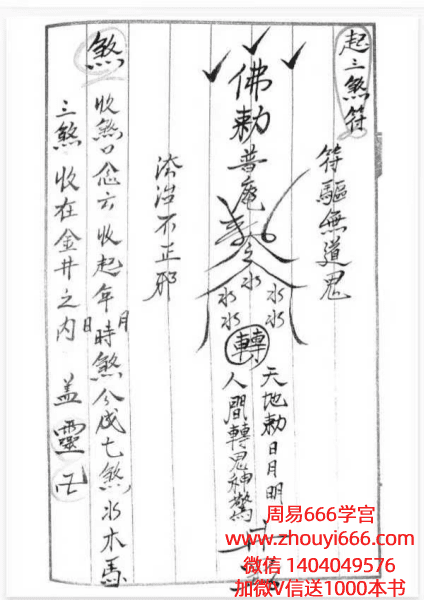 起三煞符
符驅無道鬼
佛勅普庵
令
水
水水
水水
水水
轉
天地勅日月明
人間轉鬼神驚
法治不正邪
煞
收煞口念六收起年月日時煞今成七煞水木馬
三煞收在金井之內
盖靈
周易666学宫
www.zhouyi666.com
微信 1404049576
加微V信送1000本书